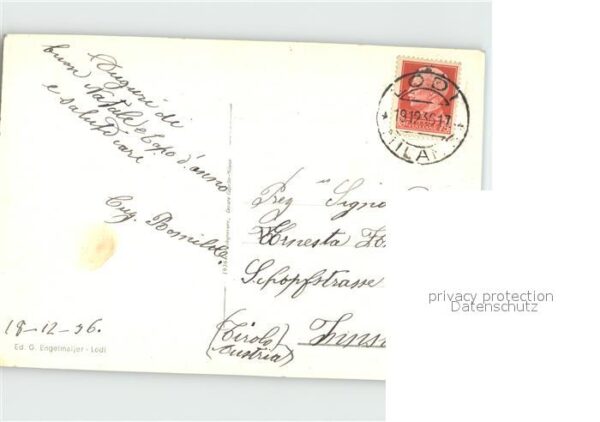 Auguri di
buon Natale e Capo d'anno
e saluti cari
Cug. Romilda.
18-12-36.
Ed. G. Engelmaijer - Lodi
LODI
19.12.36.17
MILANO
Preg Signo
Ernesta
Schöpfstrasse
(Tirolo) Innsb
Austria)
privacy protection
Datenschutz